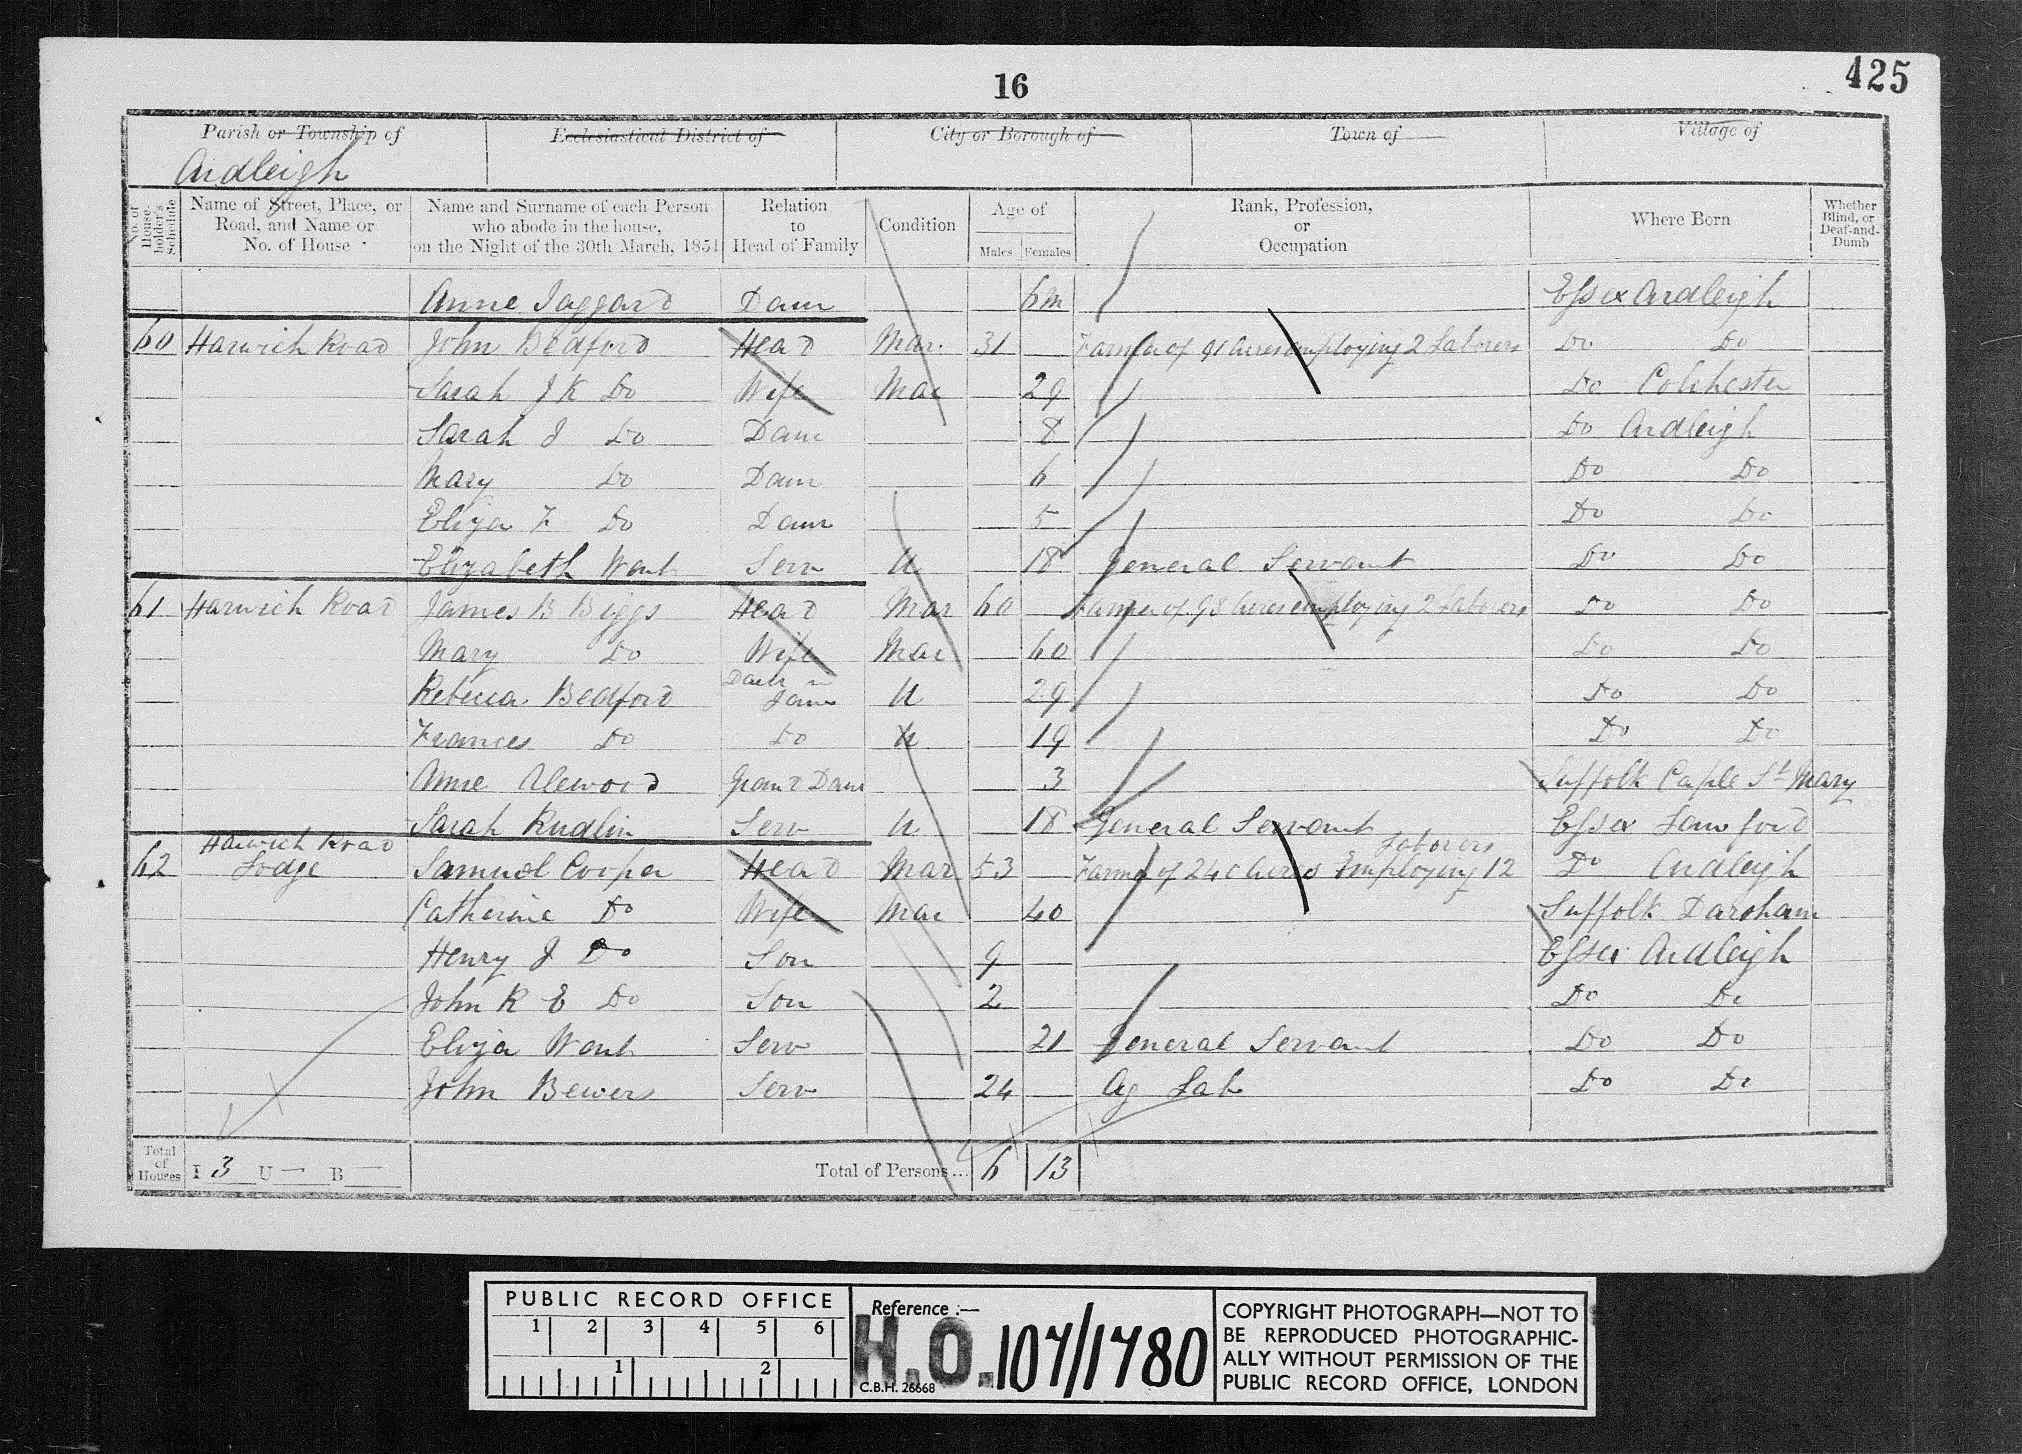 16
425
Parish or Township of
Ecclesiastical District of
City or Borough of
Town of
Village of
Ardleigh
No. of House-holder's Schedule
Name of Street, Place, or Road, and Name or No. of House
Name and Surname of each Person who abode in the house, on the Night of the 30th March, 1851
Relation to Head of Family
Condition
Age of
Males
Females
Rank, Profession, or Occupation
Where Born
Whether Blind, or Deaf-and-Dumb
Anne Jaggard Daur 6m Essex Ardleigh
60 Harwich Road John Bedford Head Mar. 31 Farmer of 91 Acres employing 2 Laborers Do Do
Sarah J K Do Wife Mar 29 Do Colchester
Sarah J Do Daur 8 Do Ardleigh
Mary Do Daur 6 Do Do
Eliza F Do Daur 5 Do Do
Elizabeth Went Serv U 18 General Servant Do Do
61 Harwich Road James B Biggs Head Mar 60 Farmer of 98 Acres employing 2 Laborers Do Do
Mary Do Wife Mar 60 Do Do
Rebecca Bedford Daur in Law U 29 Do Do
Frances Do Do U 19 Do Do
Anne Grand Daur 3 Suffolk Caple St Mary
Sarah Rudlin Serv U 18 General Servant Essex Lawford
62 Harwich Road Lodge Samuel Cooper Head Mar 53 Farmer of 240 Acres Employing 12 Laborers Do Ardleigh
Catherine Do Wife Mar 40 Suffolk Darsham
Henry J Do Son 9 Essex Ardleigh
John R E Do Son 2 Do Do
Eliza Went Serv 21 General Servant Do Do
John Bewers Serv 24 Ag Lab Do Do
Total of Houses I 3 U — B —
Total of Persons... 6 13
PUBLIC RECORD OFFICE
1 2 3 4 5 6
1 2
Reference :—
H.O. 107/1780
C.B.H. 26668
COPYRIGHT PHOTOGRAPH—NOT TO
BE REPRODUCED PHOTOGRAPHIC-
ALLY WITHOUT PERMISSION OF THE
PUBLIC RECORD OFFICE, LONDON